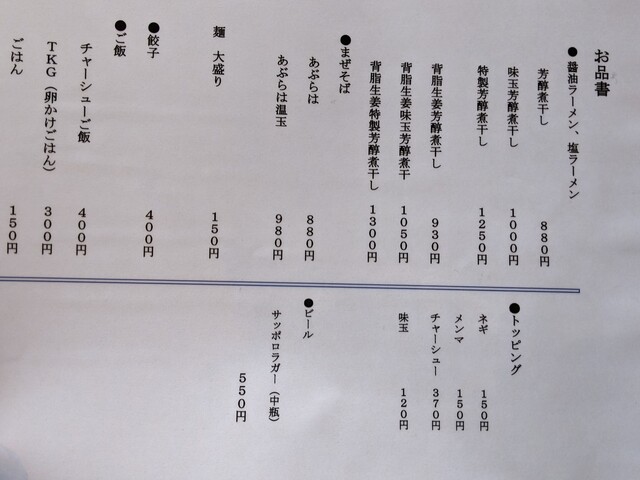 お品書
●醤油ラーメン、塩ラーメン
芳醇煮干し 880円
味玉芳醇煮干し 1000円
特製芳醇煮干し 1250円
背脂生姜芳醇煮干し 930円
背脂生姜味玉芳醇煮干 1050円
背脂生姜特製芳醇煮干し 1300円
●まぜそば
あぶらは 880円
あぶらは温玉 980円
麺 大盛り 150円
●餃子 400円
●ご飯
チャーシューご飯 400円
TKG（卵かけごはん） 300円
ごはん 150円
●トッピング
ネギ 150円
メンマ 150円
チャーシュー 370円
味玉 120円
●ビール
サッポロラガー（中瓶）
550円